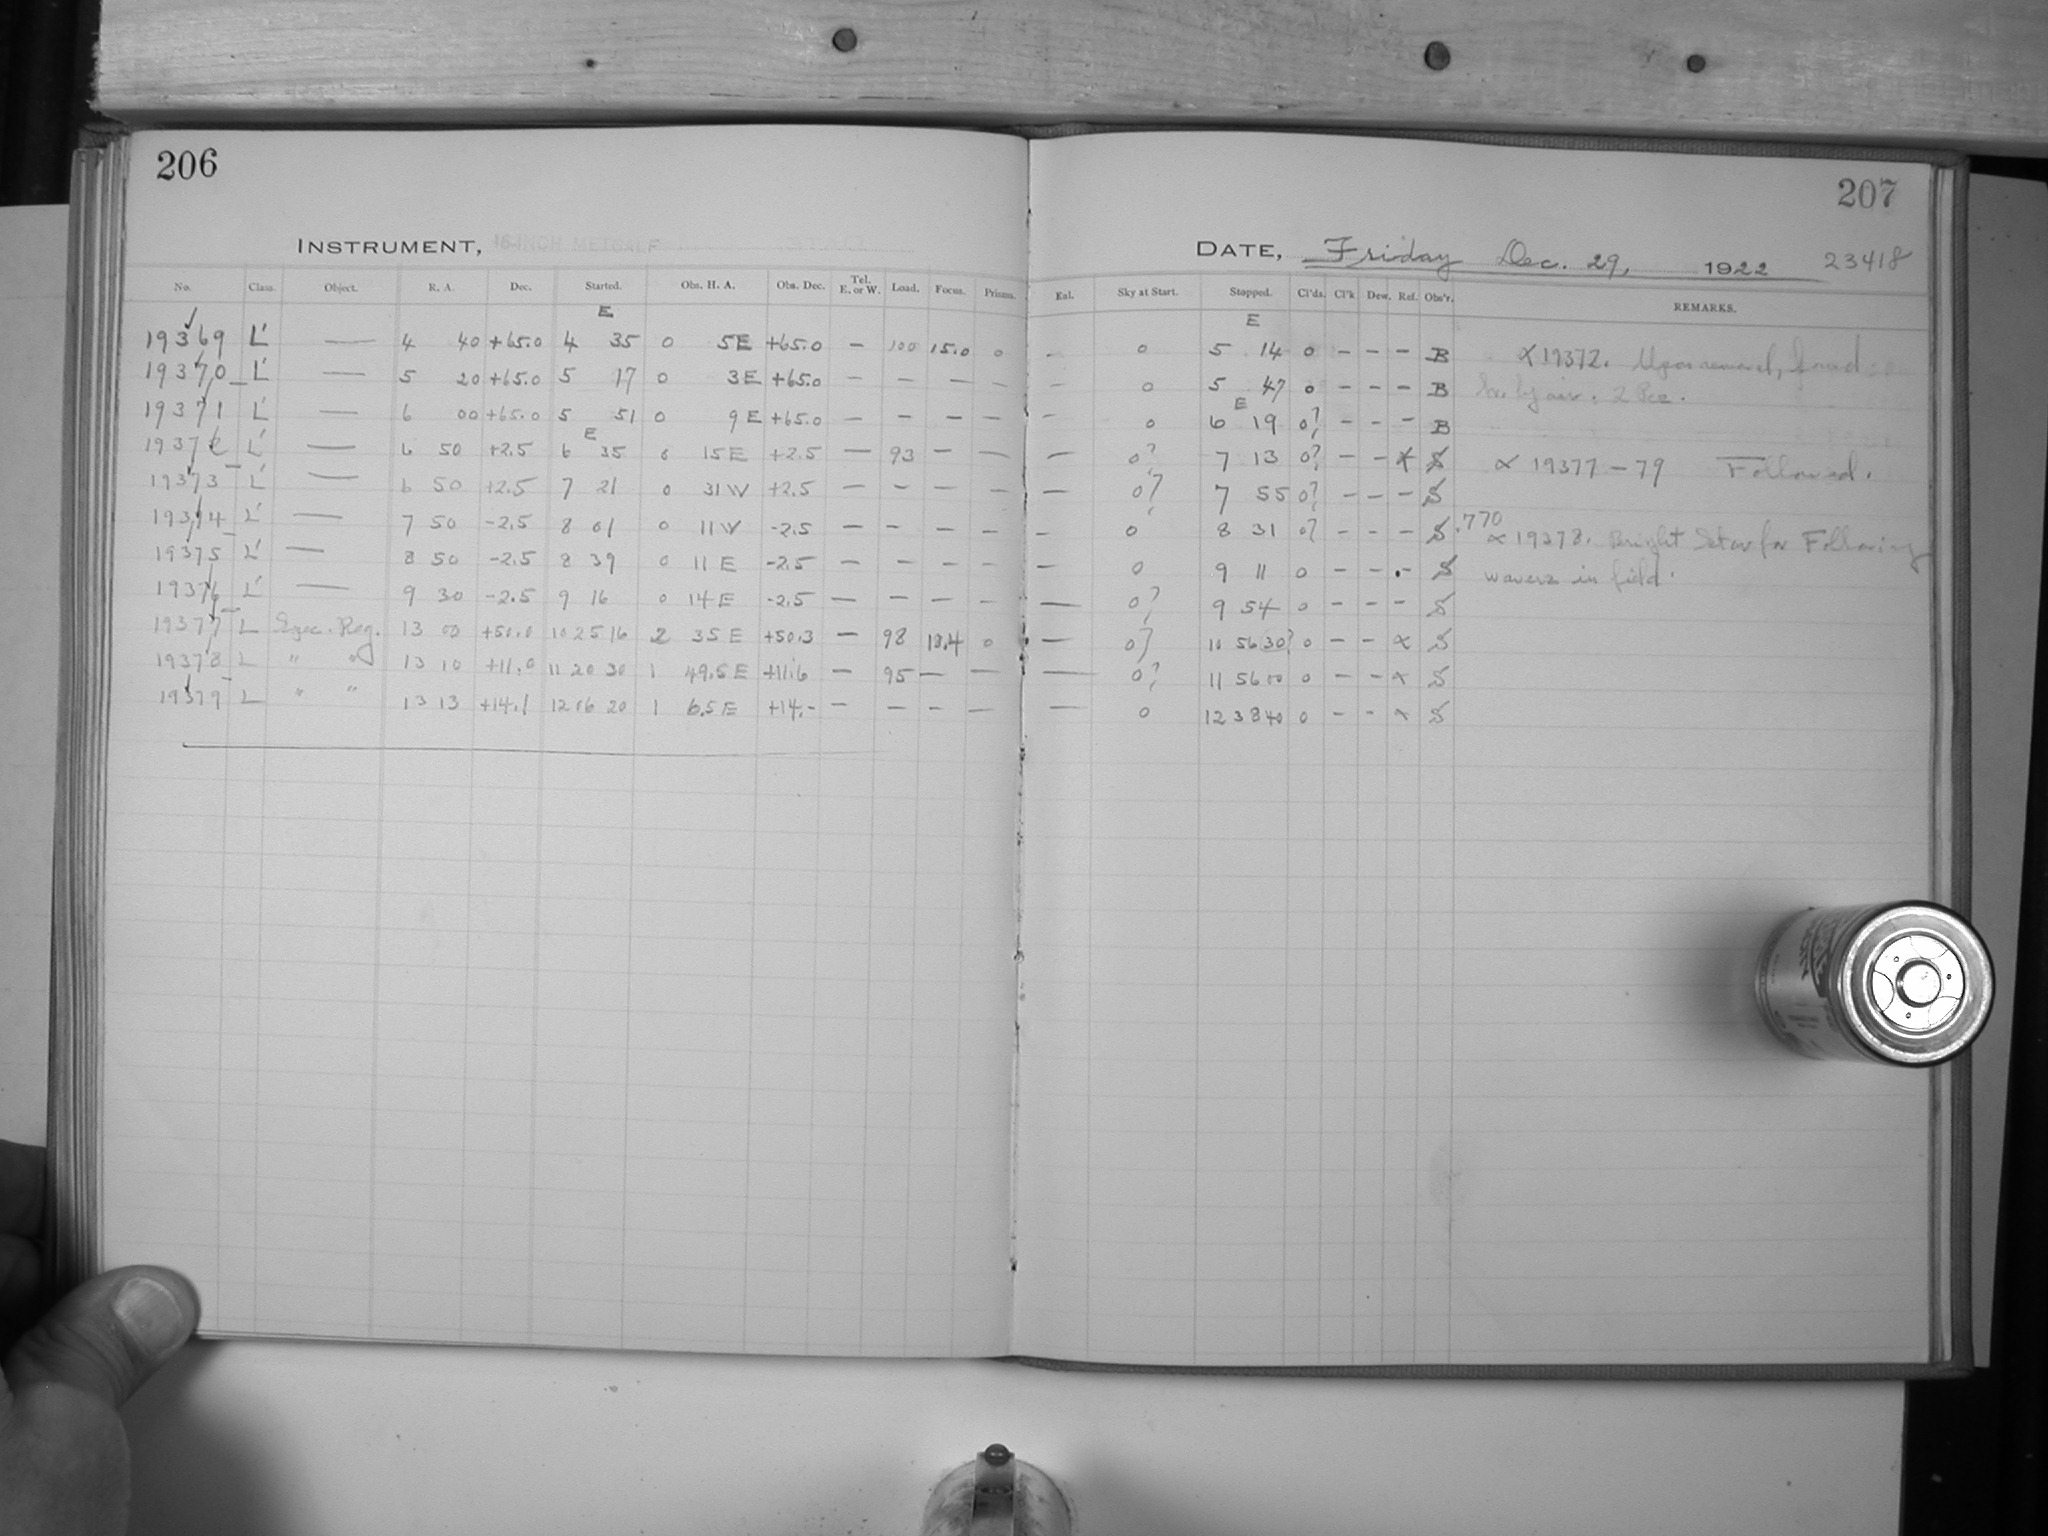 206
207
INSTRUMENT, 16-INCH METCALF
DATE, Friday Dec. 29, 1922 23418
No. Class. Object. R. A. Dec. Started. Obs. H. A. Obs. Dec. Tel. E. or W. Load. Focus. Prisms. Eal. Sky at Start. Stopped. Cl'ds. Cl'k Dew. Ref. Obs'r. REMARKS.
E E
19369 L' — 4 40 +65.0 4 35 0 5E +65.0 — 100 15.0 0 - 0 5 14 0 - - - B ∝ 19372. Upon removal, found
19370 L' — 5 20 +65.0 5 17 0 3E +65.0 — — — — — 0 5 47 0 - - - B
E
19371 L' — 6 00 +65.0 5 51 0 9E +65.0 — — — — — 0 6 19 0? - - - B
E
19372 L' — 6 50 +2.5 6 35 0 15E +2.5 — 93 — — 0? 7 13 0? - - ∝ S ∝ 19377-79 Followed.
19373 L' — 6 50 +2.5 7 21 0 31W +2.5 — — — — — 0? 7 55 0? - - - S
19374 L' — 7 50 -2.5 8 01 0 11W -2.5 — — — — — 0 8 31 0? - - - S .770
∝ 19378. Bright Star for Following
19375 L' — 8 50 -2.5 8 39 0 11E -2.5 — — — — — 0 9 11 0 - - - S wavers in field.
19376 L' — 9 30 -2.5 9 16 0 14E -2.5 — — — — — 0? 9 54 0 - - - S
19377 L Spec. Reg. 13 00 +50.0 10 25 16 2 35E +50.3 — 98 13.4 0 — 0? 10 56 30? 0 - - ∝ S
19378 L " " 13 10 +11.0 11 20 30 1 49.5E +11.6 — 95 — — — 0? 11 56 00 0 - - ∝ S
19379 L " " 13 13 +14.1 12 06 20 1 6.5E +14.- — — — — — 0 12 38 40 0 - - ∝ S